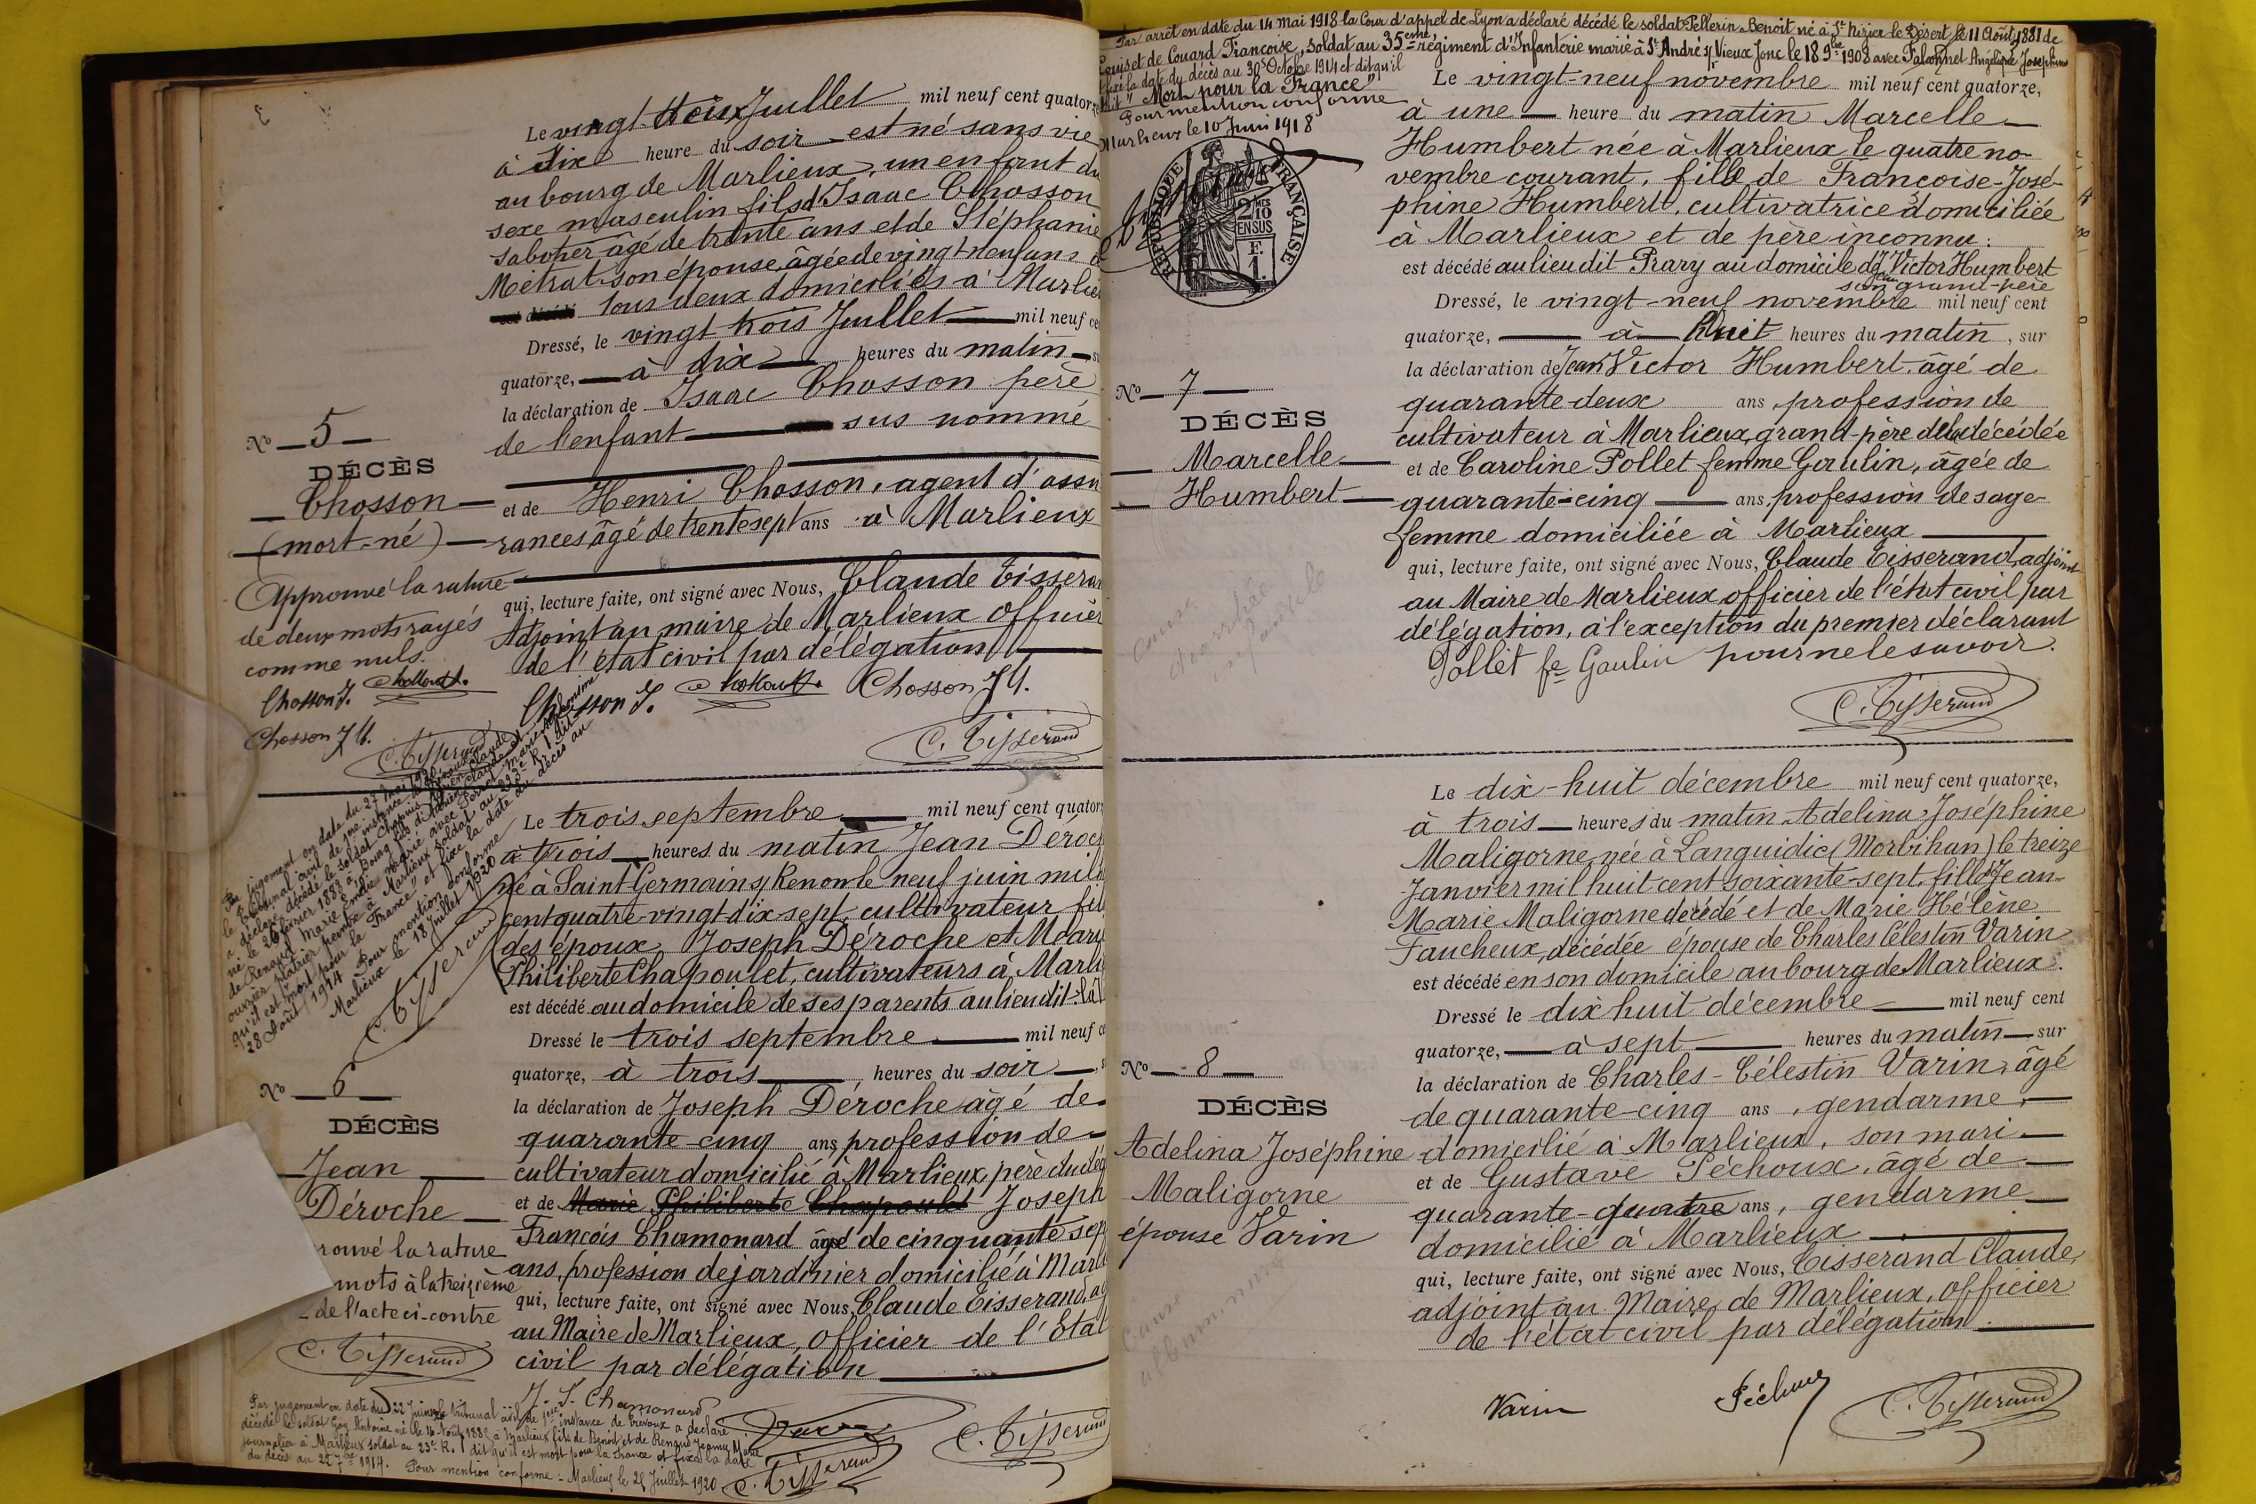 Le vingt-trois Juillet mil neuf cent quatorze
à dix heure du soir est né sans vie
au bourg de Marlieux, un enfant du
sexe masculin fils d'Isaac Chosson
sabotier âgé de trente ans et de Stéphanie
Métrat son épouse, âgée de vingt-neuf ans
est décédé tous deux domiciliés à Marlieux
Dressé, le vingt trois Juillet mil neuf cent
quatorze, à dix heures du matin
la déclaration de Isaac Chosson père
de l'enfant sus nommé
et de Henri Chosson, agent d'assu
rances âgé de trente sept ans à Marlieux
qui, lecture faite, ont signé avec Nous, Claude Tisserand
Adjoint au maire de Marlieux Officier
de l'état civil par délégation
Chosson J. Chosson J H.
C. Tisserand
No 5
DÉCÈS
Chosson
(mort-né)
Approuvé la rature
de deux mots rayés
comme nuls.
Chosson J.
Chosson J H.
C. Tisserand
Par jugement en date du 27 Mai 1920
le tribunal civil de 1ère instance de Trévoux
a déclaré décédé le soldat Chapuis
né le 26 février 1883 à Bourg fils de
de Renaud Marie marié avec
ouvrier plâtrier peintre à Marlieux soldat au 223e R.I. dit
qu'il est "mort pour la France" et fixe la date du décès au
28 Août 1914 Pour mention conforme
Marlieux le 18 Juillet 1920
C. Tisserand
Le trois septembre mil neuf cent quator
à trois heures du matin Jean Déroch
né à Saint-Germain s/ Renon le neuf juin mil
cent quatre-vingt dix sept, cultivateur fil
des époux, Joseph Déroche et Mari
Philiberte Chapoulet, cultivateurs à Marli
est décédé au domicile de ses parents au lieu dit
Dressé le trois septembre mil neuf ce
quatorze, à trois heures du soir
la déclaration de Joseph Déroche âgé de
quarante-cinq ans, profession de
cultivateur domicilié à Marlieux, père du dé
et de Marie Philiberte Chapoulet Joseph
François Chamonard âgé de cinquante sep
ans, profession de jardinier domicilié à Marl
qui, lecture faite, ont signé avec Nous, Claude Tisserand, ad
au Maire de Marlieux, Officier de l'Etat
civil par délégation
J. F. Chamonard
C. Tisserand
No 6
DÉCÈS
Jean
Déroche
rouvé la rature
mots à la treizième
de l'acte ci-contre
C. Tisserand
Par jugement en date du 22 Juin le tribunal civil de 1ère instance de Trévoux a déclaré
décédé le soldat Guy Antoine né le 16 Août 1882 à Marlieux fils de Benoit et de Renaud Jeanne Marie
journalier à Marlieux soldat au 23e R.I. dit qu'il est mort pour la France et fixe la date
du décès au 22 7bre 1914. Pour mention conforme - Marlieux le 25 Juillet 1920
C. Tisserand
Par arrêt en date du 14 Mai 1918 la Cour d'appel de Lyon a déclaré décédé le soldat Pellerin Benoit né à St Nizier le Désert le 11 Août 1881 de
Louis et de Couard Françoise, soldat au 35ème régiment d'Infanterie marié à St André s/ Vieux Jonc le 18 9bre 1908 avec Falconnet Angélique Joséphine
fixé la date du décès au 30 Octobre 1914 et dit qu'il
"Mort pour la France"
Pour mention conforme
Marlieux le 10 Juin 1918
C. Tisserand
RÉPUBLIQUE FRANÇAISE
2/10 MES
EN SUS
F.
1.
Le vingt-neuf novembre mil neuf cent quatorze,
à une heure du matin Marcelle
Humbert née à Marlieux le quatre no-
vembre courant, fille de Françoise-José-
phine Humbert, cultivatrice domiciliée
à Marlieux et de père inconnu.
est décédé au lieu dit Prary au domicile de Jean Victor Humbert
son grand-père
Dressé, le vingt-neuf novembre mil neuf cent
quatorze, à huit heures du matin, sur
la déclaration de Jean Victor Humbert, âgé de
quarante deux ans, profession de
cultivateur à Marlieux, grand-père de la décédée
et de Caroline Pollet femme Goulin, âgée de
quarante-cinq ans, profession de sage-
femme domiciliée à Marlieux
qui, lecture faite, ont signé avec Nous, Claude Tisserand, adjoint
au Maire de Marlieux, officier de l'état civil par
délégation, à l'exception du premier déclarant
Pollet fe Goulin pour ne le savoir.
C. Tisserand
No 7
DÉCÈS
Marcelle
Humbert
Cause
diarrhée
infantile
Le dix-huit décembre mil neuf cent quatorze,
à trois heures du matin Adelina Joséphine
Maligorne, née à Languidic (Morbihan) le treize
Janvier mil huit cent soixante-sept, fille de Jean-
Marie Maligorne décédé et de Marie Hélène
Faucheux, décédée épouse de Charles Célestin Varin
est décédé en son domicile au bourg de Marlieux.
Dressé le dix huit décembre mil neuf cent
quatorze, à sept heures du matin sur
la déclaration de Charles-Célestin Varin, âgé
de quarante-cinq ans, gendarme,
domicilié à Marlieux, son mari
et de Gustave Péchoux, âgé de
quarante-quatre ans, gendarme
domicilié à Marlieux
qui, lecture faite, ont signé avec Nous, Tisserand Claude,
adjoint au Maire de Marlieux, officier
de l'état civil par délégation.
Varin Péchoux C. Tisserand
No 8
DÉCÈS
Adelina Joséphine
Maligorne
épouse Varin
Cause
albuminurie